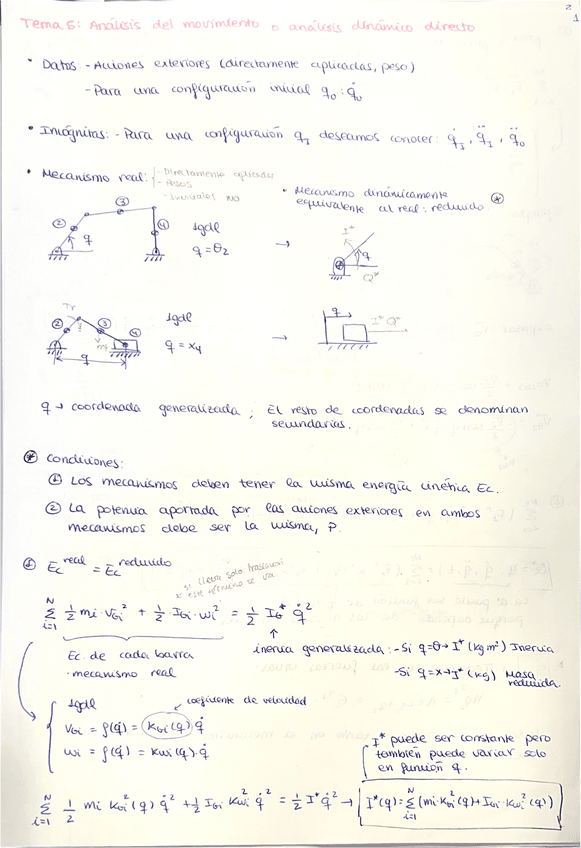 2
1
Tema 5: Análisis del movimiento o análisis dinámico directo
• Datos: - Acciones exteriores (directamente aplicadas, peso)
- Para una configuración inicial q₀ : q̇₀
• Incógnitas: - Para una configuración q_I deseamos conocer: q̇_I, q̈_I, q̈₀
• Mecanismo real: - Directamente aplicadas
- Pesos
- Inerciales NO
• Mecanismo dinámicamente
equivalente al real: reducido ⊛
② ③ ④ q
1gdl
q = θ₂
→
I* q
Q*
Tr
② ③ ④
q
1gdl
q = x₄
→
q
I* Q*
q → coordenada generalizada ; El resto de coordenadas se denominan
secundarias.
⊛ Condiciones:
① Los mecanismos deben tener la misma energía cinética Ec.
② La potencia aportada por las acciones exteriores en ambos
mecanismos debe ser la misma, P.
① Ec^real = Ec^reducido
si lleva solo traslación
este término se va
Σ_{i=1}^N ½ mi · v_Gi² + ½ I_Gi · wi² = ½ I_G* q̇²
Ec de cada barra
· mecanismo real
inercia generalizada: - Si q=θ → I* (kg m²) Inercia
- Si q=x → I* (kg) Masa
reducida.
1gdl
coeficiente de velocidad
v_Gi = f(q̇) = k_Gi(q) q̇
wi = f(q̇) = k_wi(q) · q̇
I* puede ser constante pero
también puede variar solo
en función q.
Σ_{i=1}^N ½ mi k_Gi²(q) q̇² + ½ I_Gi k_wi² q̇² = ½ I* q̇² → I*(q) = Σ_{i=1}^N (mi · k_Gi²(q) + I_Gi · k_wi²(q))